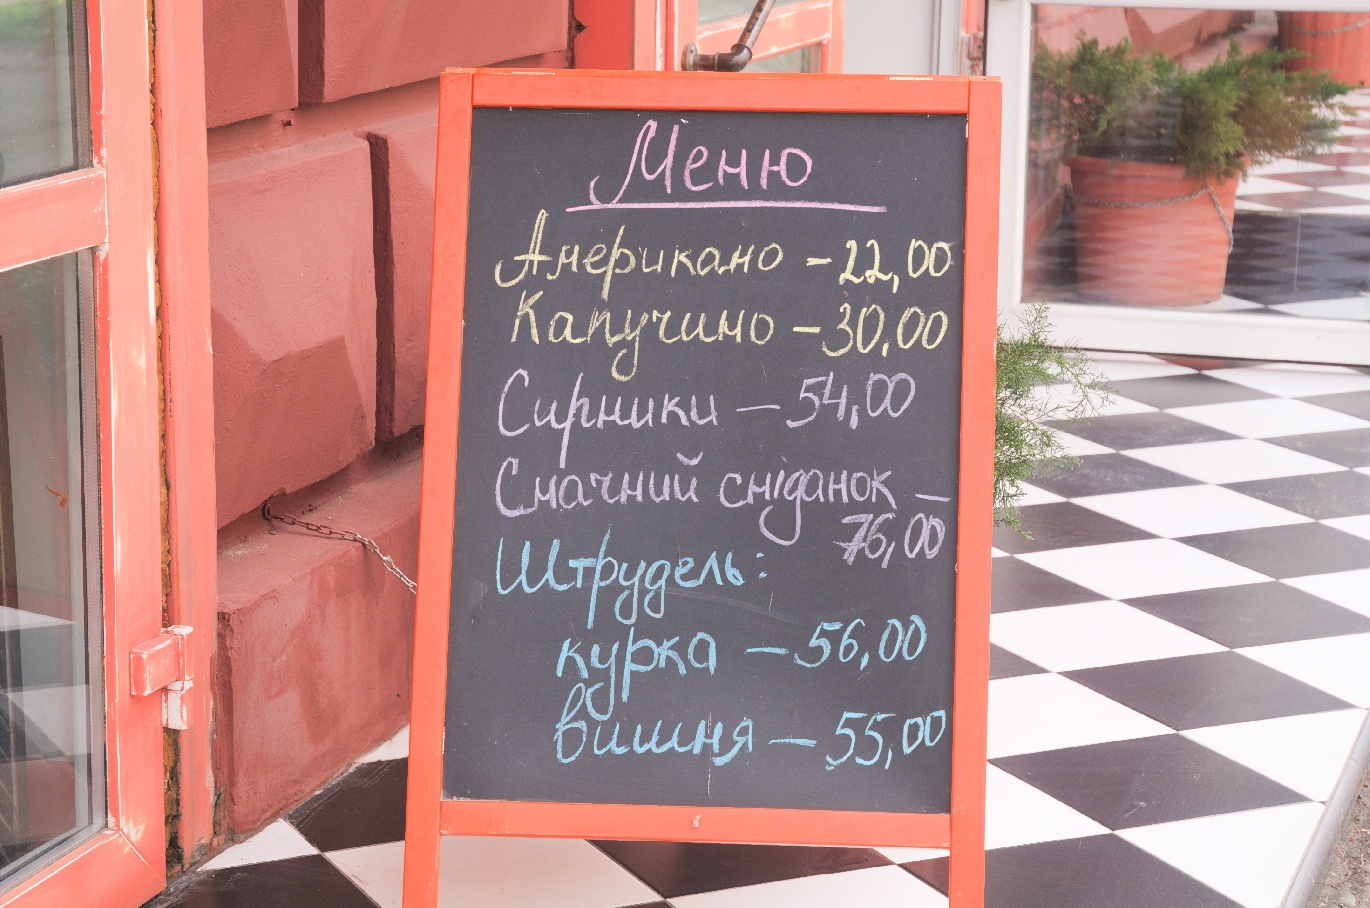 Меню
Американо - 22,00
Капучино - 30,00
Сирники - 54,00
Смачний сніданок -
76,00
Штрудель:
курка - 56,00
вишня - 55,00